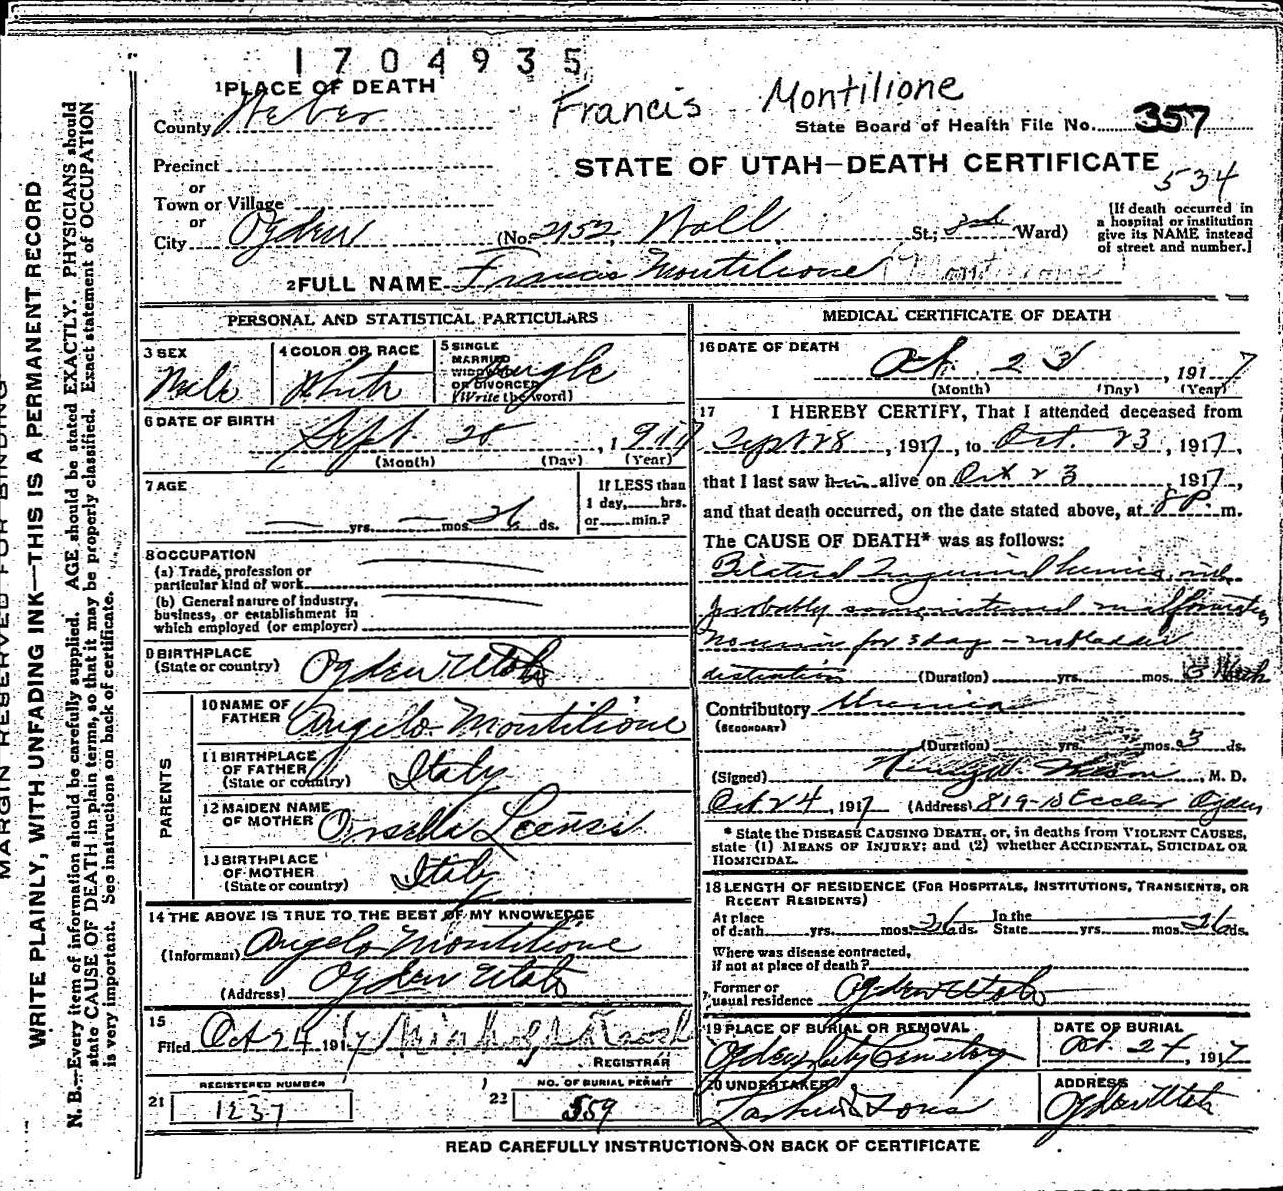 1704935
Francis Montilione
1 PLACE OF DEATH
County Weber
State Board of Health File No. 357
Precinct
STATE OF UTAH—DEATH CERTIFICATE
534
or
Town or Village
or
City Ogden (No. 2152, Wall St.; 2nd Ward)
[If death occurred in
a hospital or institution
give its NAME instead
of street and number.]
2 FULL NAME Francis Montilione (Montilione)
PERSONAL AND STATISTICAL PARTICULARS
3 SEX
Male
4 COLOR OR RACE
White
5 SINGLE
MARRIED
WIDOWED
OR DIVORCED
(Write the word)
Single
6 DATE OF BIRTH
Sept. 28, 1917
(Month) (Day) (Year)
7 AGE
— yrs. — mos. 26 ds.
If LESS than
1 day, hrs.
or min.?
8 OCCUPATION
(a) Trade, profession or
particular kind of work
(b) General nature of industry,
business, or establishment in
which employed (or employer)
9 BIRTHPLACE
(State or country) Ogden Utah
PARENTS
10 NAME OF
FATHER Angelo Montilione
11 BIRTHPLACE
OF FATHER
(State or country) Italy
12 MAIDEN NAME
OF MOTHER
13 BIRTHPLACE
OF MOTHER
(State or country) Italy
14 THE ABOVE IS TRUE TO THE BEST OF MY KNOWLEDGE
(Informant) Angelo Montilione
(Address) Ogden Utah
15
Filed Oct 24 1917
REGISTRAR
REGISTERED NUMBER
21 1237
NO. OF BURIAL PERMIT
22 559
MEDICAL CERTIFICATE OF DEATH
16 DATE OF DEATH
Oct. 23, 1917
(Month) (Day) (Year)
17 I HEREBY CERTIFY, That I attended deceased from
Sept 28, 1917, to Oct. 23, 1917,
that I last saw him alive on Oct 23, 1917,
and that death occurred, on the date stated above, at 8 P. m.
The CAUSE OF DEATH* was as follows:
Bilateral Inguinal hernia, and
probably some internal malformation
No urine for 3 days — no bladder
distention (Duration) yrs. mos. 3
Contributory Uremia
(SECONDARY)
(Duration) yrs. mos. 3 ds.
(Signed) Henry W. Nelson, M. D.
Oct 24, 1917 (Address) 819-13 Eccles Ogden
* State the DISEASE CAUSING DEATH, or, in deaths from VIOLENT CAUSES,
state (1) MEANS OF INJURY; and (2) whether ACCIDENTAL, SUICIDAL OR
HOMICIDAL.
18 LENGTH OF RESIDENCE (FOR HOSPITALS, INSTITUTIONS, TRANSIENTS, OR
RECENT RESIDENTS)
At place
of death yrs. mos. 26 ds. In the
State yrs. mos. 26 ds.
Where was disease contracted,
if not at place of death?
Former or
usual residence Ogden Utah
19 PLACE OF BURIAL OR REMOVAL
Ogden City Cemetery
DATE OF BURIAL
Oct. 24, 1917
20 UNDERTAKER
Larkin & Sons
ADDRESS
Ogden Utah
READ CAREFULLY INSTRUCTIONS ON BACK OF CERTIFICATE
MARGIN RESERVED FOR BINDING
WRITE PLAINLY, WITH UNFADING INK—THIS IS A PERMANENT RECORD
N. B.—Every item of information should be carefully supplied. AGE should be stated EXACTLY. PHYSICIANS should
state CAUSE OF DEATH in plain terms, so that it may be properly classified. Exact statement of OCCUPATION
is very important. See instructions on back of certificate.